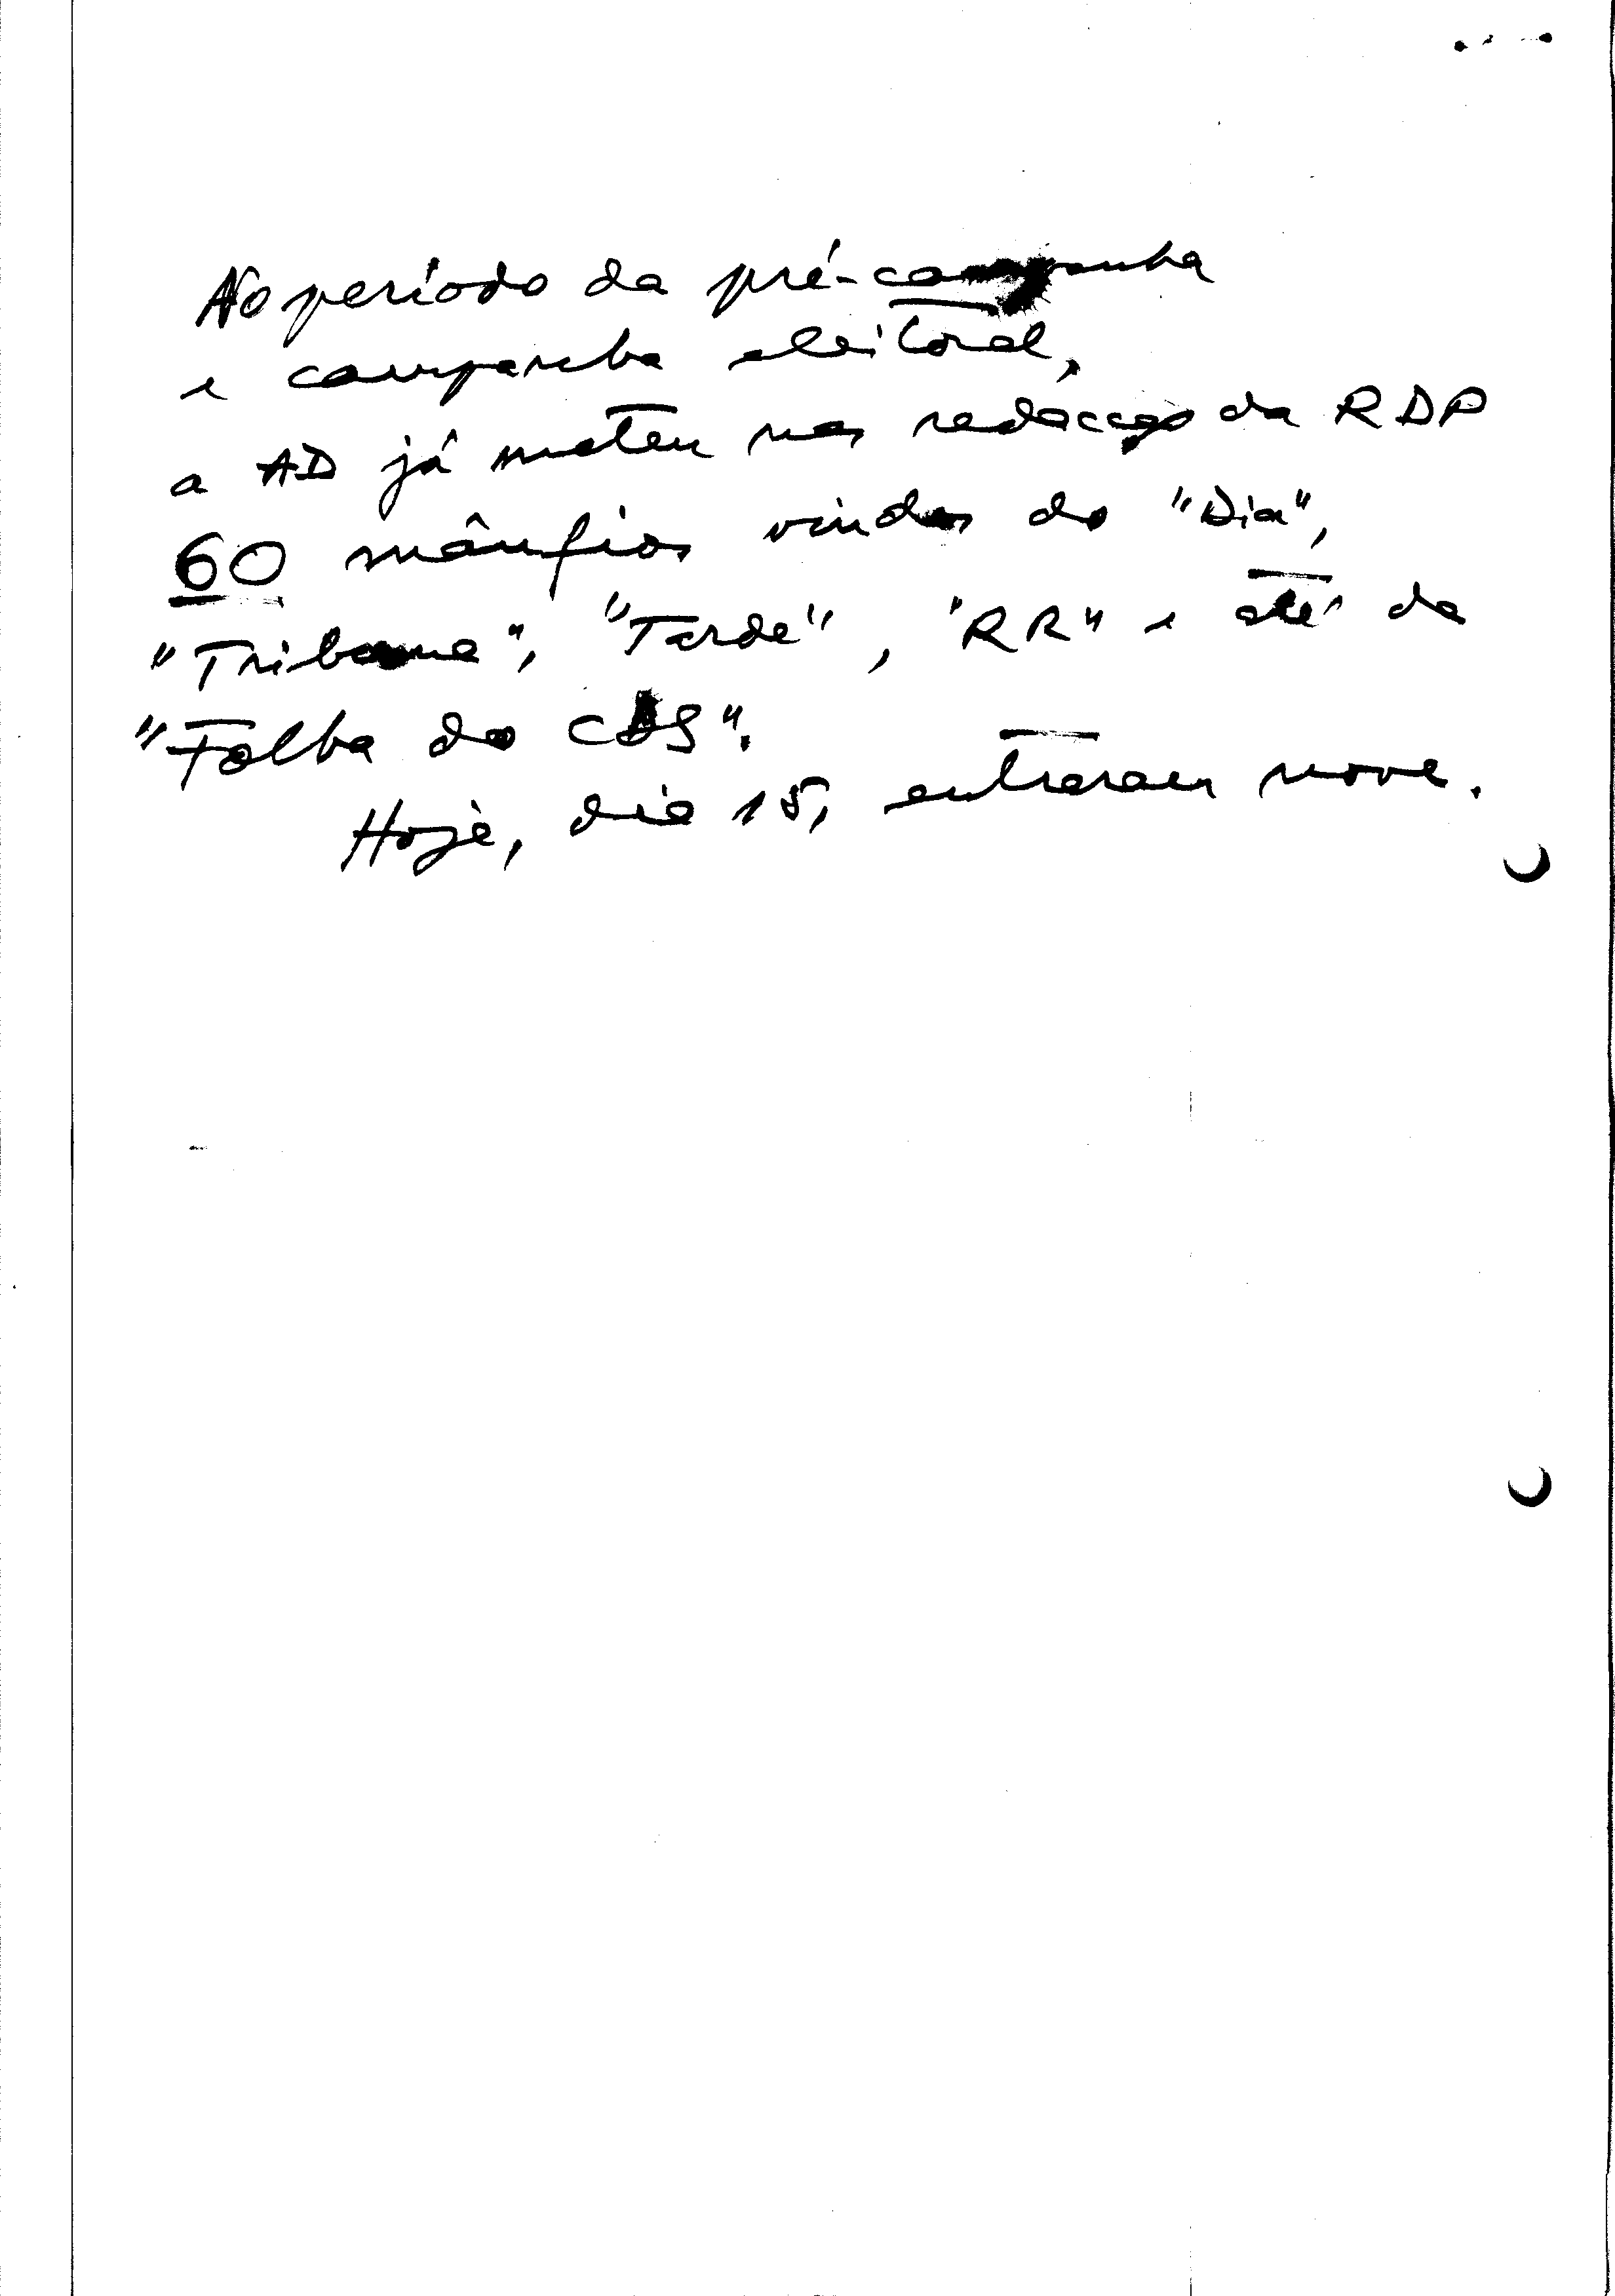 No período da pré-campanha
e campanha eleitoral,
a AD já meteu na redacção da RDP
60 mânfios vindos do "Dia",
"Tribuna", "Tarde", "RR" e até da
"Folha do CDS".
Hoje, dia 15, entraram nove.